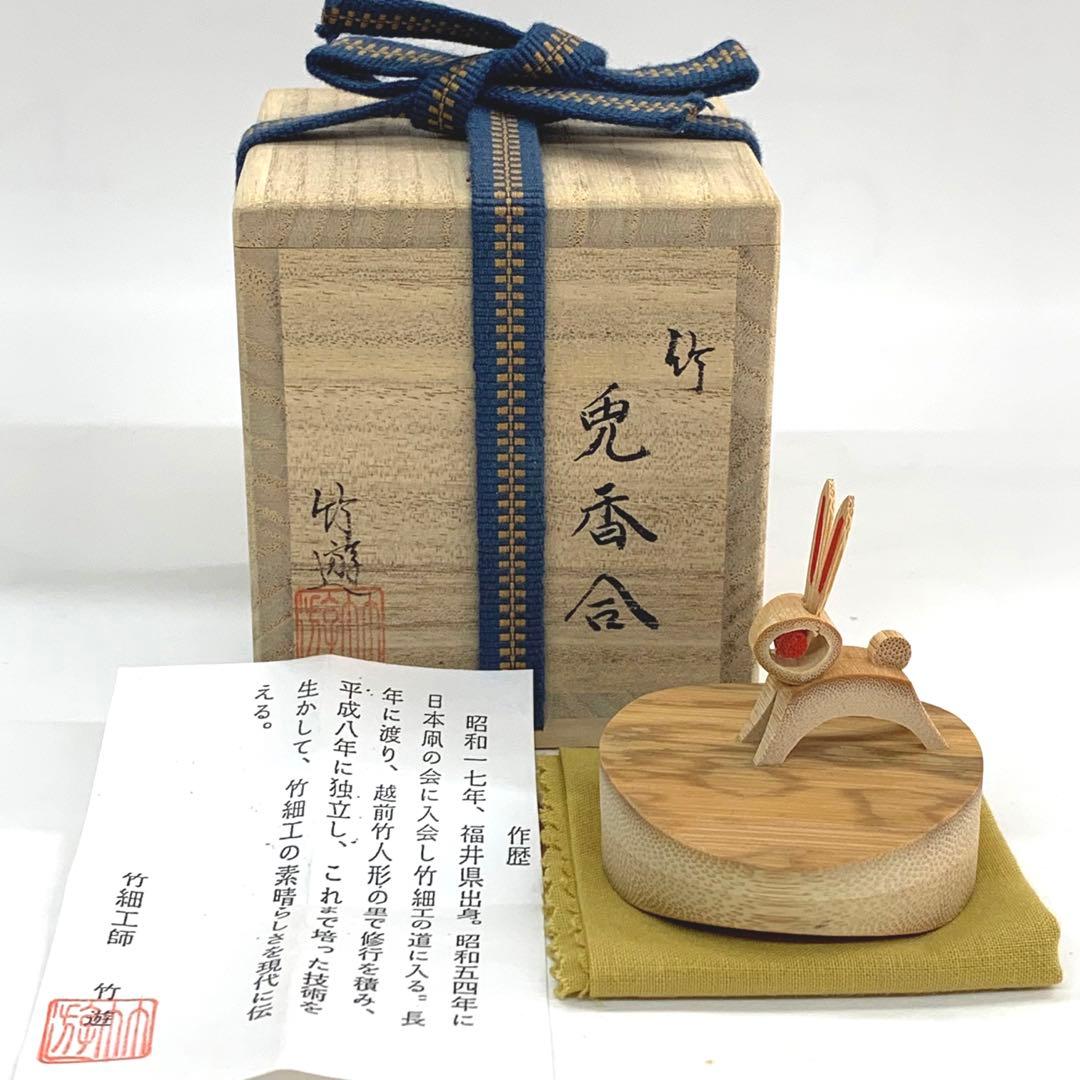 竹
兎香合
竹遊
作歴
昭和一七年、福井県出身。昭和五四年に
日本凧の会に入会し竹細工の道に入る。長
年に渡り、越前竹人形の里で修行を積み、
平成八年に独立し、これまで培った技術を
生かして、竹細工の素晴らしさを現代に伝
える。
竹細工師 竹遊